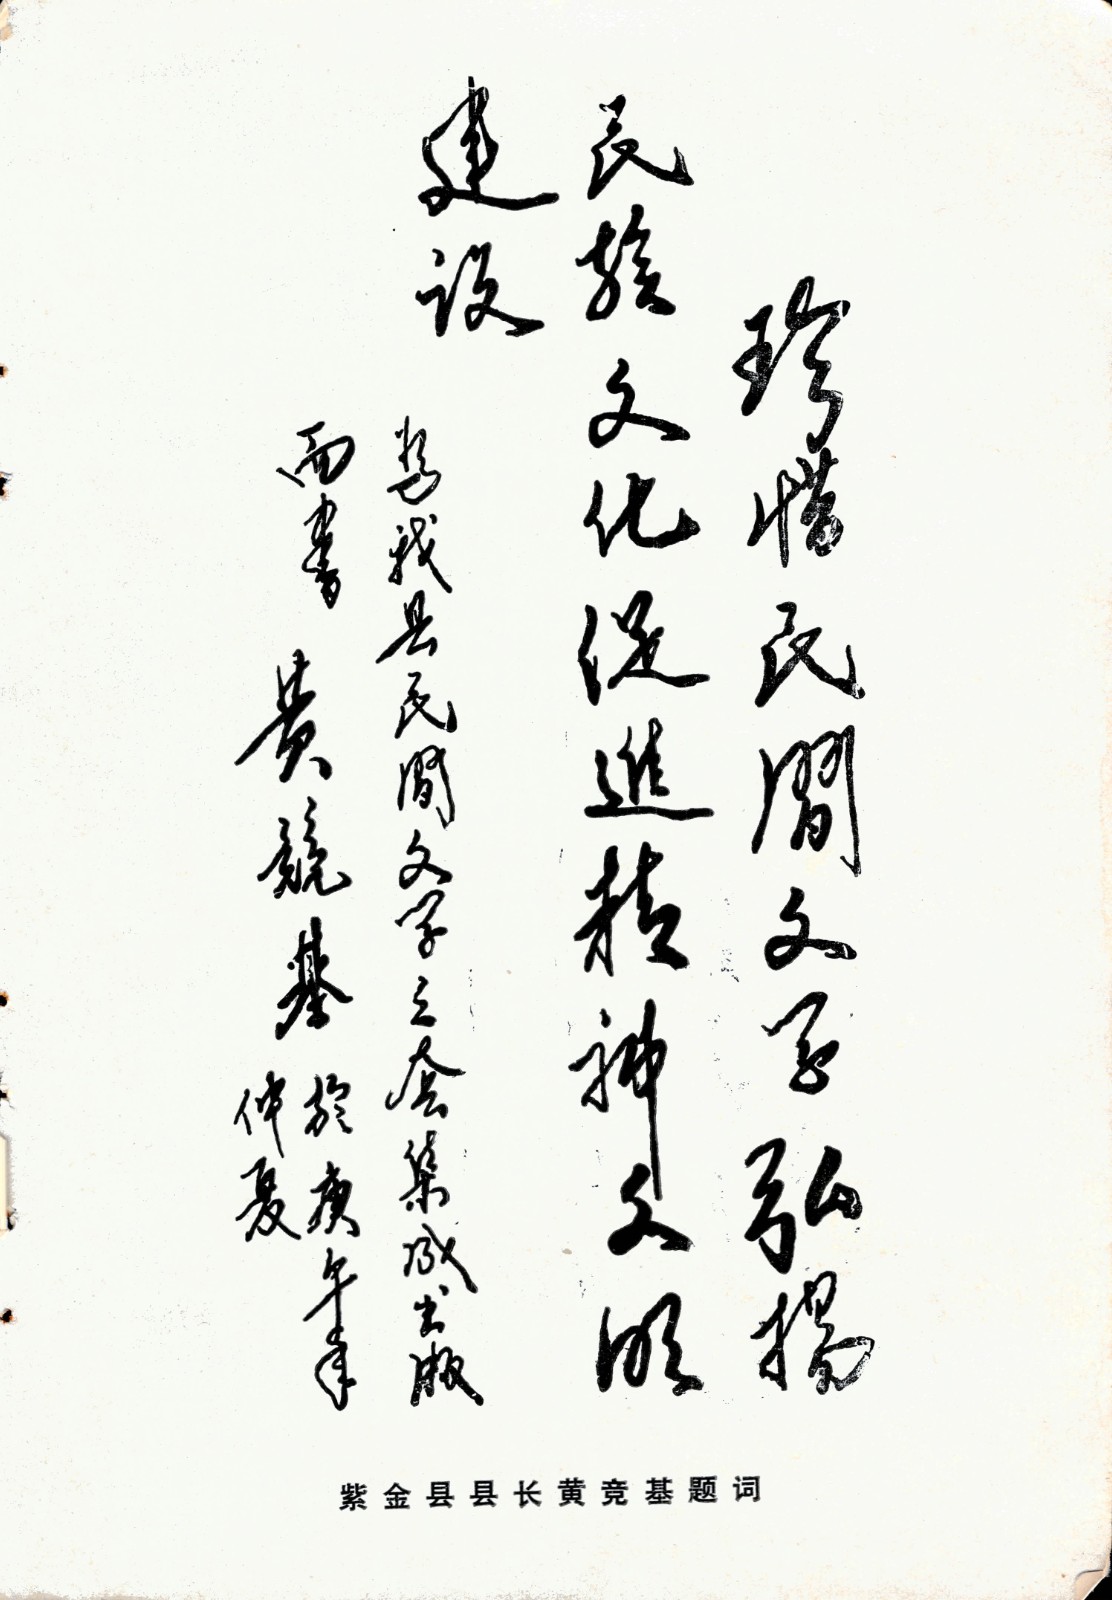 珍惜民間文学弘揚
民族文化促進精神文明
建设
為我县民间文学三套集成出版
而書
黄競基
於庚午年
仲夏
紫金县县长黄竞基题词